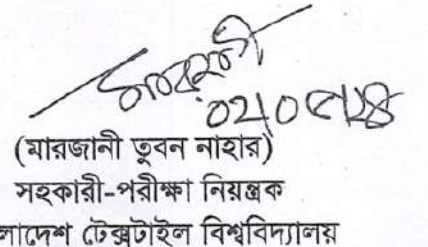 ০২/০৫/২৪
(মারজানী তুবন নাহার)
সহকারী-পরীক্ষা নিয়ন্ত্রক
লাদেশ টেক্সটাইল বিশ্ববিদ্যালয়